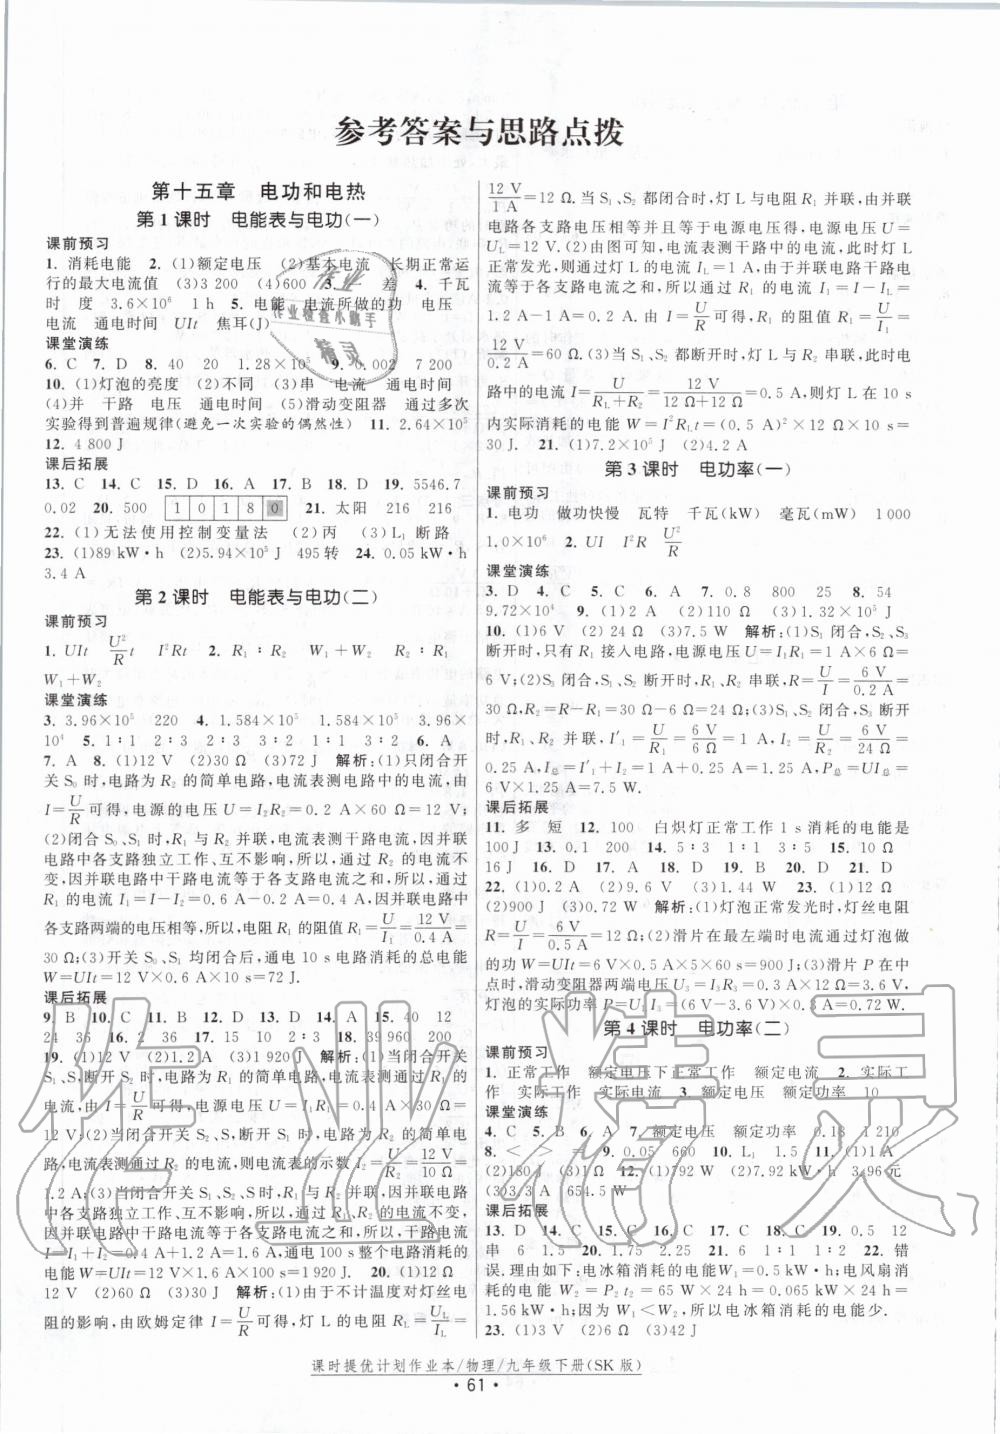 参考答案与思路点拨
第十五章　电功和电热
第 1 课时　电能表与电功(一)
课前预习
1. 消耗电能　2. (1)额定电压　(2)基本电流　长期正常运
行的最大电流值　(3)3 200　(4)600　3. 一　差　4. 千瓦
时　度　3.6×10⁶　1 h　5. 电能　电流所做的功　电压
电流　通电时间　UIt　焦耳(J)
课堂演练
6. C　7. D　8. 40　20　1.28×10⁵　9. 0.002　7 200
10. (1)灯泡的亮度　(2)不同　(3)串　电流　通电时间
(4)并　干路　电压　通电时间　(5)滑动变阻器　通过多次
实验得到普遍规律(避免一次实验的偶然性)　11. 2.64×10⁵
12. 4 800 J
课后拓展
13. C　14. C　15. D　16. A　17. B　18. D　19. 5546.7
0.02　20. 500　1 0 1 8 0　21. 太阳　216　216
22. (1)无法使用控制变量法　(2)丙　(3)L₁ 断路
23. (1)89 kW·h　(2)5.94×10⁵ J　495转　24. 0.05 kW·h
3.4 A
第 2 课时　电能表与电功(二)
课前预习
1. UIt　U²/R t　I²Rt　2. R₁∶R₂　W₁+W₂　R₂∶R₁
W₁+W₂
课堂演练
3. 3.96×10⁵　220　4. 1.584×10⁵　1.584×10⁵　3.96×
10⁴　5. 1∶1　2∶3　3∶2　1∶1　3∶2　6. A
7. A　8. (1)12 V　(2)30 Ω　(3)72 J　解析:(1)只闭合开
关 S₀ 时,电路为 R₂ 的简单电路,电流表测电路中的电流,由
I=U/R可得,电源的电压 U=I₂R₂=0.2 A×60 Ω=12 V;
(2)闭合 S₀、S₁ 时,R₁ 与 R₂ 并联,电流表测干路电流,因并联
电路中各支路独立工作、互不影响,所以,通过 R₂ 的电流不
变,因并联电路中干路电流等于各支路电流之和,所以,通过
R₁ 的电流 I₁=I-I₂=0.6 A-0.2 A=0.4 A,因并联电路中
各支路两端的电压相等,所以,电阻 R₁ 的阻值 R₁=U/I₁=12 V/0.4 A=
30 Ω;(3)开关 S₀、S₁ 均闭合后,通电 10 s 电路消耗的总电能
W=UIt=12 V×0.6 A×10 s=72 J.
课后拓展
9. B　10. C　11. C　12. D　13. D　14. A　15. 40　12
24　36　16. 2　36　17. 15　10　18. 39 960　200
19. (1)12 V　(2)1.2 A　(3)1 920 J　解析:(1)当闭合开关
S₁、断开 S₂ 时,电路为 R₁ 的简单电路,电流表测电路中的
电流,由 I=U/R可得,电源电压 U=I₁R₁=0.4 A×30 Ω=
12 V;(2)当闭合开关 S₂、断开 S₁ 时,电路为 R₂ 的简单电
路,电流表测通过 R₂ 的电流,则电流表的示数 I₂=U/R₂=12 V/10 Ω=
1.2 A;(3)当闭合开关 S₁、S₂ 时,R₁ 与 R₂ 并联,因并联电路
中各支路独立工作、互不影响,所以,通过两电阻的电流不
变,因并联电路中干路电流等于各支路电流之和,所以,干路电流
I=I₁+I₂=0.4 A+1.2 A=1.6 A,通电 100 s整个电路消耗的
电能 W=UIt=12 V×1.6 A×100 s=1 920 J.　20. (1)
12 V　(2)60 Ω　(3)30 J　解析:(1)由于不计温度对灯丝电
阻的影响,由欧姆定律 I=U/R可得,灯 L 的电阻 R_L=U_L/I_L=
12 V/1 A=12 Ω.当 S₁、S₂ 都闭合时,灯 L 与电阻 R₁ 并联,并联
电路各支路电压相等并且等于电源电压,所以电源电压 U=
U_L=12 V.(2)由图可知,电流表测干路中的电流,此时灯 L
正常发光,则通过灯 L 的电流 I_L=1 A,由于并联电路干路电
流等于各支路电流之和,所以通过 R₁ 的电流 I₁=I-I_L=
1.2 A-1 A=0.2 A.由 I=U/R可得,R₁ 的阻值 R₁=U/I₁=
12 V/0.2 A=60 Ω.(3)当 S₁、S₂ 都断开时,灯 L 与 R₂ 串联,此时电
路中的电流 I=U/(R_L+R₂)=12 V/(12 Ω+12 Ω)=0.5 A,则灯 L 在 10 s
内实际消耗的电能 W=I²R_Lt=(0.5 A)²×12 Ω×10 s=
30 J.　21. (1)7.2×10⁵ J　(2)4.2 A
第 3 课时　电功率(一)
课前预习
1. 电功　做功快慢　瓦特　千瓦(kW)　毫瓦(mW)　1 000
1.0×10⁶　2. UI　I²R　U²/R
课堂演练
3. D　4. C　5. C　6. A　7. 0.8　800　25　8. 54
9.72×10⁴　9. (1)2 A　(2)110 Ω　(3)1.32×10⁵ J
10. (1)6 V　(2) 24 Ω　(3)7.5 W　解析:(1)S₁ 闭合,S₂、S₃
断开时,只有 R₁ 接入电路,电源电压 U=I₁R₁=1 A×6 Ω=
6 V;(2)S₃ 闭合,S₁、S₂ 断开时,R₁、R₂ 串联,R=U/I=6 V/0.2 A=
30 Ω,R₂=R-R₁=30 Ω-6 Ω=24 Ω;(3)S₁、S₂ 闭合,S₃ 断开
时,R₁、R₂ 并联,I′₁=U/R₁=6 V/6 Ω=1 A,I₂=U/R₂=6 V/24 Ω=
0.25 A,I总=I′₁+I₂=1 A+0.25 A=1.25 A,P总=UI总=
6 V×1.25 A=7.5 W.
课后拓展
11. 多　短　12. 100　白炽灯正常工作 1 s 消耗的电能是
100 J　13. 0.1　200　14. 5∶3　1∶1　3∶5　15. 10 Ω
16 J　16. D　17. A　18. D　19. B　20. D　21. D
22. (1)0.2 A　(2)9.6 V　(3)2.4 W　23. (1)12 Ω
(2)900 J　(3)0.72 W　解析:(1)灯泡正常发光时,灯丝电阻
R=U/I=6 V/0.5 A=12 Ω;(2)滑片在最左端时电流通过灯泡做
的功 W=UIt=6 V×0.5 A×5×60 s=900 J;(3)滑片 P 在中
点时,滑动变阻器两端电压 U₃=I₃R₃=0.3 A×12 Ω=3.6 V,
灯泡的实际功率 P=U₁I₃=(6 V-3.6 V)×0.3 A=0.72 W.
第 4 课时　电功率(二)
课前预习
1. 正常工作　额定电压下正常工作　额定电流　2. 实际工
作　实际工作　实际电流　3. 额定电压　额定功率　10
课堂演练
4. C　5. B　6. A　7. 额定电压　额定功率　0.18　1 210
8. <　>　=　9. 0.05　660　10. L₁　1.5　11. (1)1 A
(2)180 J　(3)12 Ω　12. (1)792 W　(2)7.92 kW·h　3.96元
(3)3.3 A　654.5 W
课后拓展
13. D　14. C　15. C　16. C　17. C　18. C　19. 0.5　12
串　6　1.5　20. 1.75　2.25　21. 6　1∶1　1∶2　22. 错
误.理由如下:电冰箱消耗的电能W₁=0.5 kW·h;电风扇消
耗的电能 W₂=P₂t₂=65 W×24 h=0.065 kW×24 h=
1.56 kW·h!因为 W₁<W₂,所以电冰箱消耗的电能少.
23. (1)3 V　(2)6 Ω　(3)42 J
课时提优计划作业本/物理/九年级下册(SK 版)
· 61 ·
作业
作业检查小助手
精灵
作业精灵